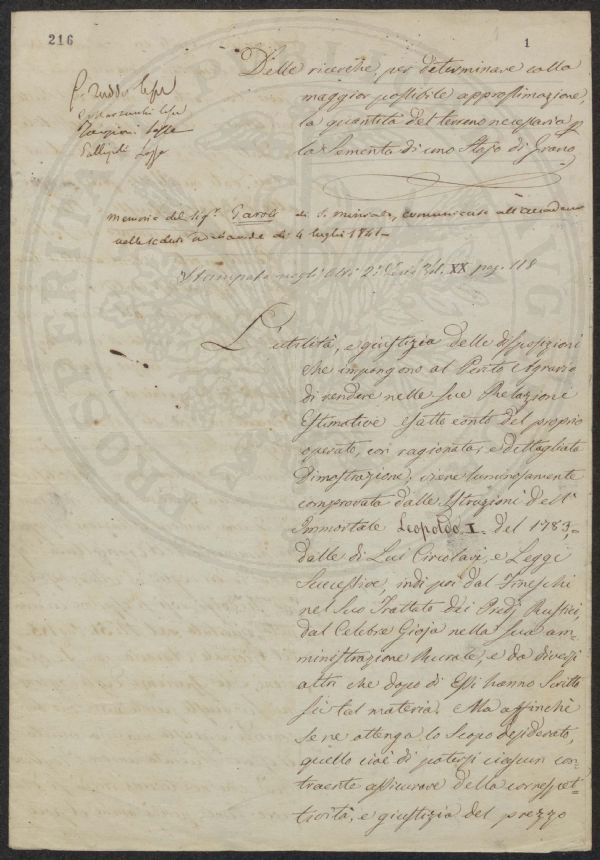 216
1
Delle ricerche, per determinare colla
maggior possibile approssimazione,
la quantità del terreno necessaria p
la Sementa di uno Stajo di Grano
Memoria del Sig.r Taroli di S. Miniato, comunicata all'Accademia
nella di 4 luglio 1841
Stampata negli Atti Vol. XX pag. 118
L'utilità, e giustizia delle disposizioni
che impongono al Perito Agrario
di rendere nelle sue Relazioni
Estimative esatto conto del proprio
operato, con ragionata, e dettagliata
Dimostrazione; viene luminosamente
comprovata dalle Istruzioni dell'
Immortale Leopoldo I. del 1783,
dalle di Lui Circolari, e Leggi
Successive, indi poi dal Fineschi
nel Suo Trattato dei Predj Rustici,
dal Celebre Gioja nella Sua am-
ministrazione Rurale, e da diversi
altri che dopo di Essi hanno Scritto
su tal materia. Ma affinchè
se ne ottenga lo Scopo desiderato,
quello cioè di potersi ciascun con-
traente assicurare della corrispet-
tività, e giustizia del prezzo
PROSPERITÀ